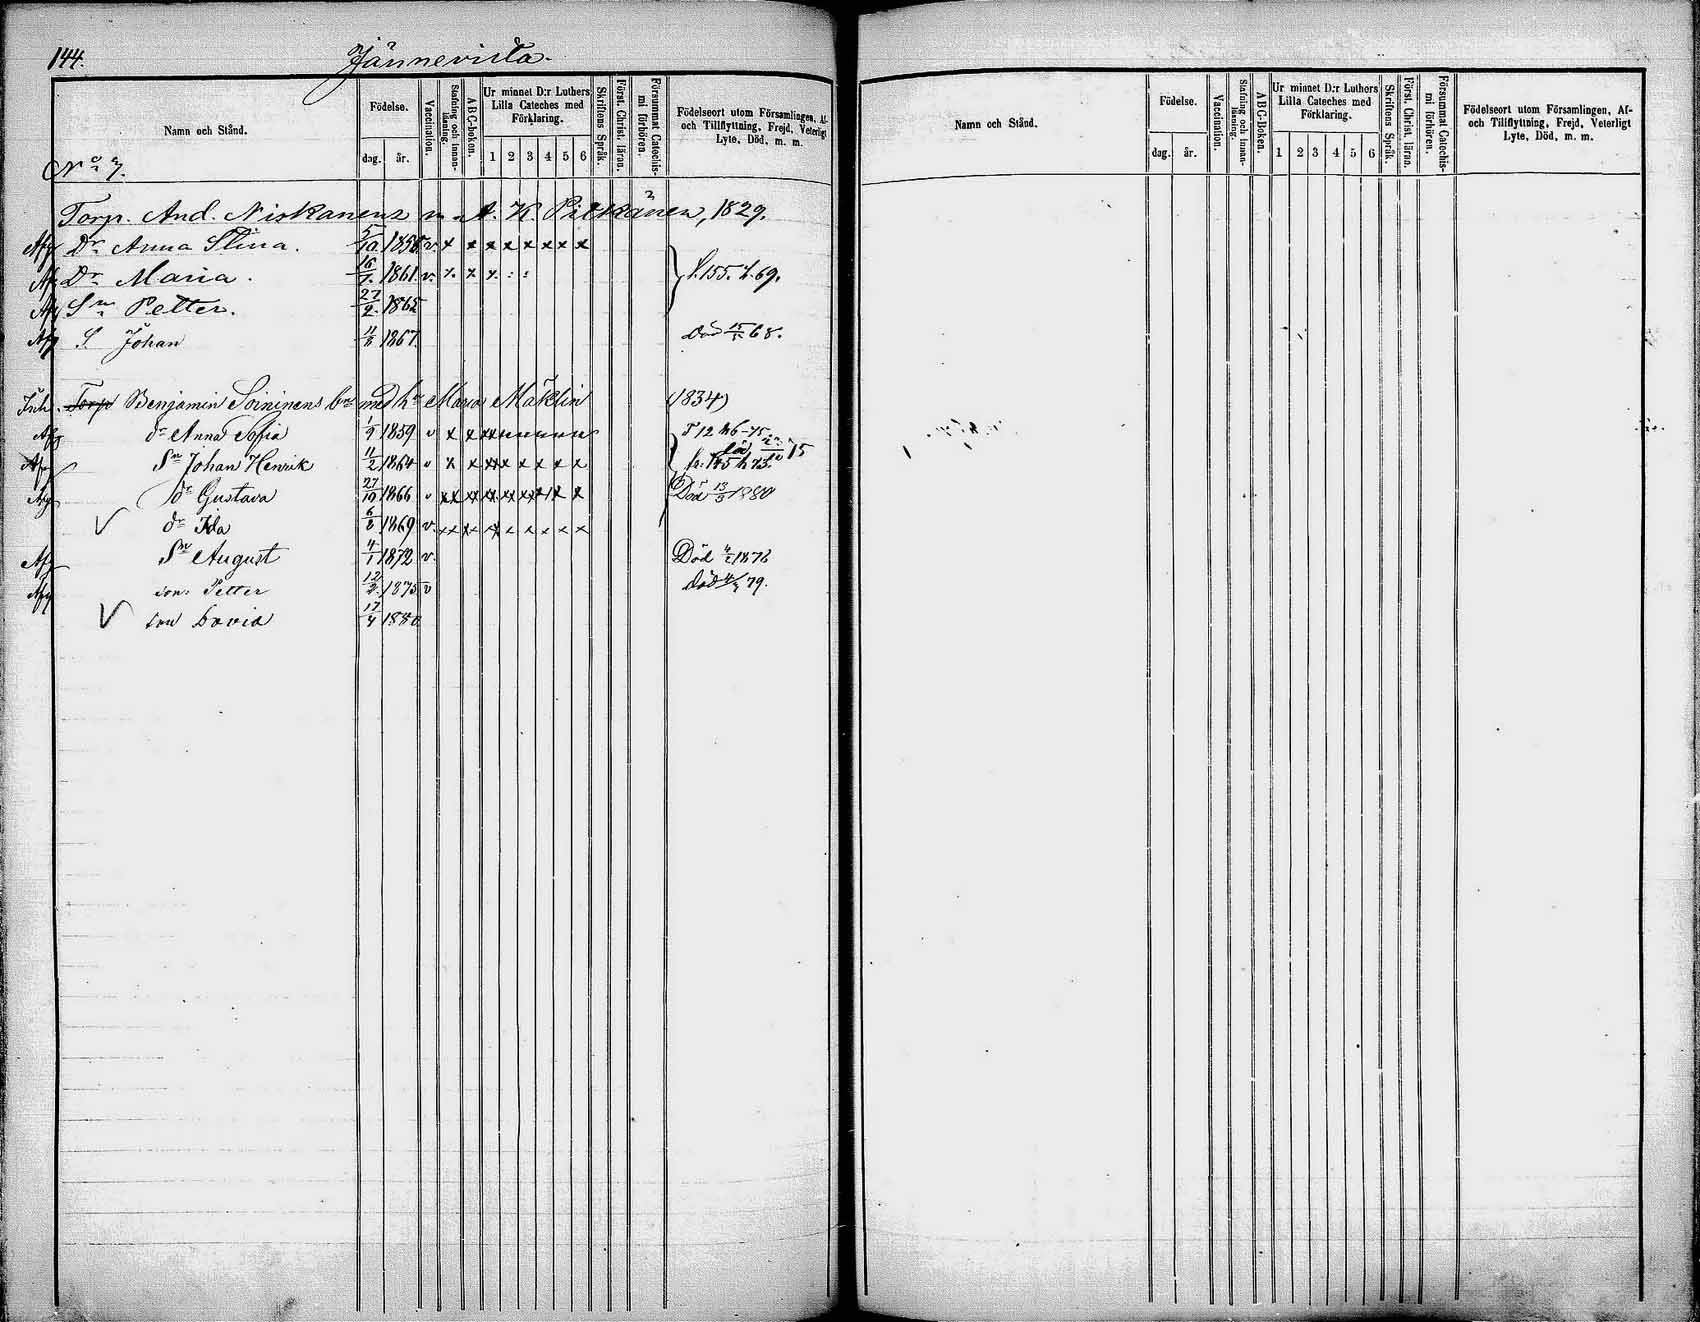 144. Jännevirta.
Namn och Stånd.
Födelse.
dag. år.
Vaccination.
Stafning och innanläsning.
ABC-boken.
Ur minnet D:r Luthers Lilla Cateches med Förklaring.
1 2 3 4 5 6
Skriftens Språk.
Först. Christ. läran.
Försummat Catechismi förhören.
Födelseort utom Församlingen, Af- och Tillflyttning, Frejd, Veterligt Lyte, Död, m. m.
Namn och Stånd.
Födelse.
dag. år.
Vaccination.
Stafning och innanläsning.
ABC-boken.
Ur minnet D:r Luthers Lilla Cateches med Förklaring.
1 2 3 4 5 6
Skriftens Språk.
Först. Christ. läran.
Försummat Catechismi förhören.
Födelseort utom Församlingen, Af- och Tillflyttning, Frejd, Veterligt Lyte, Död, m. m.
No 7.
Torp. And. Niskanens m. A. K. Pitkänen, 1829.
Afg Dr Anna Stina. 5/10. 1858 v. x x x x x x x x
Af Dr Maria. 16/7. 1861. v. x x x : : } f. 155. h. 69.
Afg Sn Petter. 27/2. 1865
Afg S. Johan 11/8 1867. död 15/5 68.
Inh. Torp Benjamin Soininens med h. Maria Mäklin (1834)
Afg dr Anna Sofia 1/9 1859 v x x T 12 h 6-75
Afg Sn Johan Henrik 11/2 1864 v x x x x x x x x fr. 145 h 73.
Afg dr Gustava 27/10 1866 v Död 13/5 1880
√ dr Ida 6/8 1869 v.
Afg Sn August 4/1 1872 v. Död 4/2 1876
Afg son: Petter 12/2. 1875 v död 4/3 79.
√ son David 17/4 1880